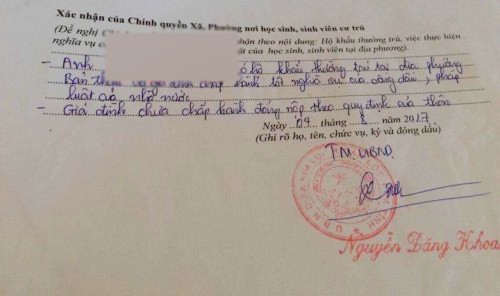 Xác nhận của Chính quyền Xã, Phường nơi học sinh, sinh viên cư trú
(Đề nghị nhận theo nội dung: Hộ khẩu thường trú, việc thực hiện
nghĩa vụ c uật của học sinh, sinh viên tại địa phương).
- Anh có hộ khẩu thường trú tại địa phương
Bản thân và gia đình chấp hành tốt nghĩa vụ của công dân, pháp
luật của nhà nước.
- Gia đình chưa chấp hành đóng nộp theo quy định của thôn
Ngày 09 tháng 8 năm 2017
(Ghi rõ họ, tên, chức vụ, ký và đóng dấu)
TM. UBND
Nguyễn Đăng Khoa